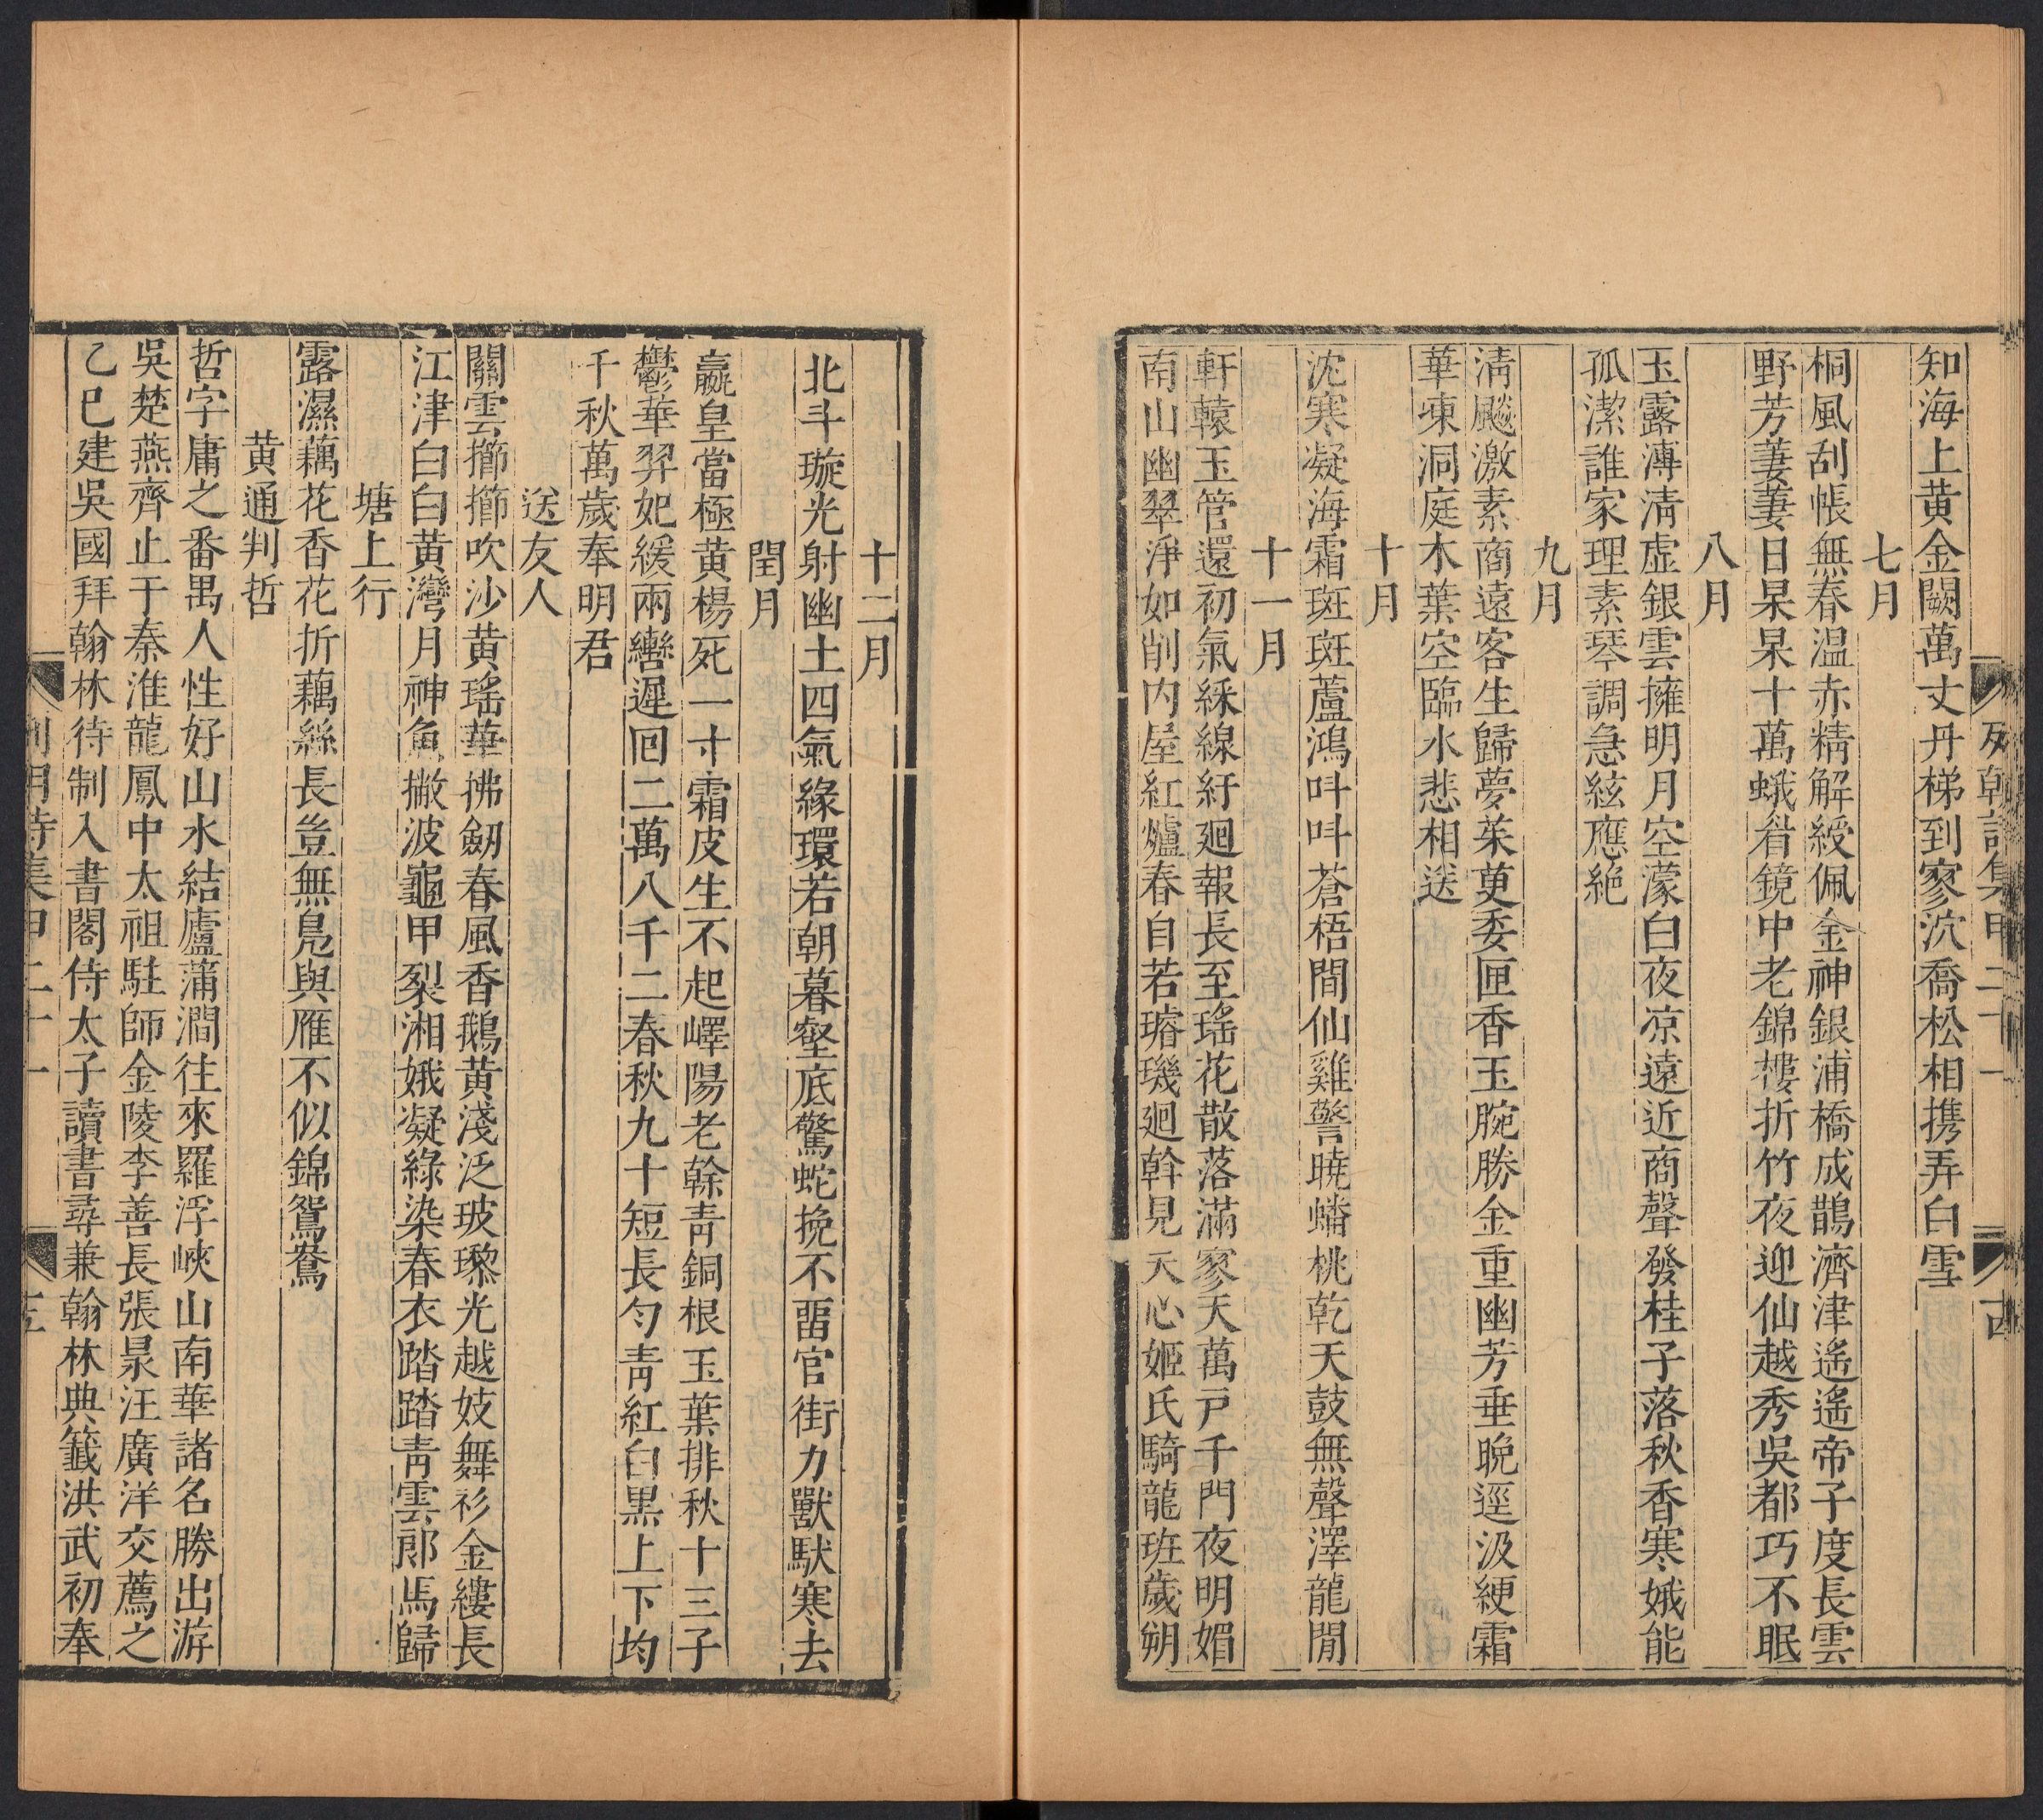 知海上黄金闕萬丈丹梯到寥泬喬松相携弄白雪
七月
桐風刮帳無春温赤精解綬佩金神銀浦橋成鵲濟津遙遙帝子度長雲
野芳萋萋日杲杲十萬蛾眉鏡中老錦樓折竹夜迎仙越秀吳都巧不眠
八月
玉露漙清虛銀雲擁明月空濛白夜凉遠近商聲發桂子落秋香寒娥能
孤潔誰家理素琴調急絃應絶
九月
清飈激素商遠客生歸夢茱萸委匣香玉腕勝金重幽芳垂晩逕汲綆霜
華凍洞庭木葉空臨水悲相送
十月
沈寒凝海霜斑斑蘆鴻呌呌蒼梧間仙雞警曉蟠桃乾天鼓無聲澤龍閒
十一月
軒轅玉管還初氣綵線紆廻報長至瑤花散落滿寥天萬戸千門夜明媚
南山幽翠淨如削内屋紅爐春自若璿璣廻斡見天心姬氏騎龍班歲朔
列朝詩集甲二十一
古
十二月
北斗璇光射幽土四氣緣環若朝暮壑底驚蛇挽不畱官街力獸馱寒去
閏月
嬴皇當極黄楊死一寸霜皮生不起嶧陽老榦靑銅根玉葉排秋十三子
鬱華羿妃緩兩轡遲囘二萬八千二春秋九十短長勻靑紅白黒上下均
千秋萬歲奉明君
送友人
關雲擳擳吹沙黄瑤華拂劒春風香鵝黄淺泛玻瓈光越妓舞衫金縷長
江津白白黄灣月神魚撇波龜甲裂湘娥凝綠染春衣踏踏靑雲郞馬歸
塘上行
露濕藕花香花折藕絲長豈無鳬與雁不似錦鴛鴦
黄通判哲
哲字庸之番禺人性好山水結廬蒲澗往來羅浮峽山南華諸名勝出游
吳楚燕齊止于秦淮龍鳳中太祖駐師金陵李善長張㫤汪廣洋交薦之
乙巳建吳國拜翰林待制入書閣侍太子讀書尋兼翰林典籖洪武初奉
列朝詩集甲二十一